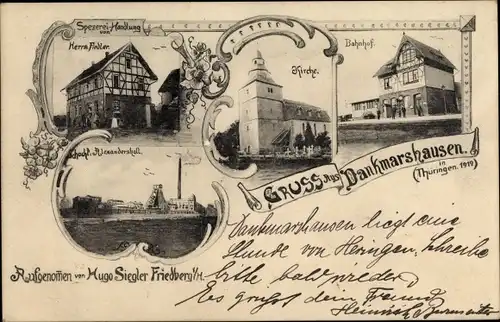 Spezerei-Handlung
von
Herrn Fiedler.
Kirche.
Bahnhof.
Schacht Alexandershall.
GRUSS AUS Dankmarshausen.
in
(Thüringen. 1919)
Dankmarshausen liegt eine
Stunde von Heringen. Schreibe
bitte bald wieder
Es grüsst dein Freund
Heinrich
Aufgenomen von Hugo Siegler Friedberg i/H.